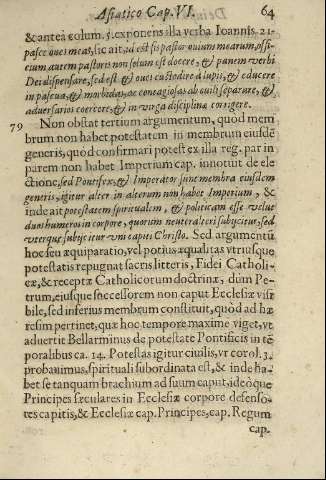 Asiatico Cap. VI. 64
& antea colum. 5. exponens illa verba Ioannis. 21.
pasce oues meas, sic ait, id est sis pastor ouium mearum, offi-
cium autem pastoris non solum est docere, & panem verbi
Dei dispensare, sed est & oues custodire à lupis, & educere
in pascua, & morbidas, ac contagiosas ab cuili separare, &
aduersarios coercere, & in virga disciplinæ corrigere.
79 Non obstat tertium argumentum, quod mem
brum non habet potestatem in membrum eiusdē
generis, quòd confirmari potest ex illa reg. par in
parem non habet Imperium cap. innotuit de ele
ctione, sed Pontifex, & Imperator sunt membra eiusdem
generis, igitur alter in alterum non habet Imperium, &
inde ait potestatem spiritualem, & politicam esse velut
duos humeros in corpore, quorum neuter alteri subijcitur, sed
vterque subijcitur vni capiti Christo. Sed argumentū
hoc seu æquiparatio, vel potius æqualitas vtriusque
potestatis repugnat sacris litteris, Fidei Catholi-
cæ, & receptæ Catholicorum doctrinæ, dum Pe-
trum, eiusque successorem non caput Ecclesiæ visi
bile, sed inferius membrum constituit, quòd ad hæ
resim pertinet, quæ hoc tempore maxime viget, vt
aduertit Bellarminus de potestate Pontificis in tē
poralibus ca. 14. Potestas igitur ciuilis, vt corol. 3.
probauimus, spirituali subordinata est, & inde ha-
bet se tanquam brachium ad suum caput, ideòque
Principes sæculares in Ecclesiæ corpore defenso-
res capitis, & Ecclesiæ cap. Principes, cap. Regum
cap.